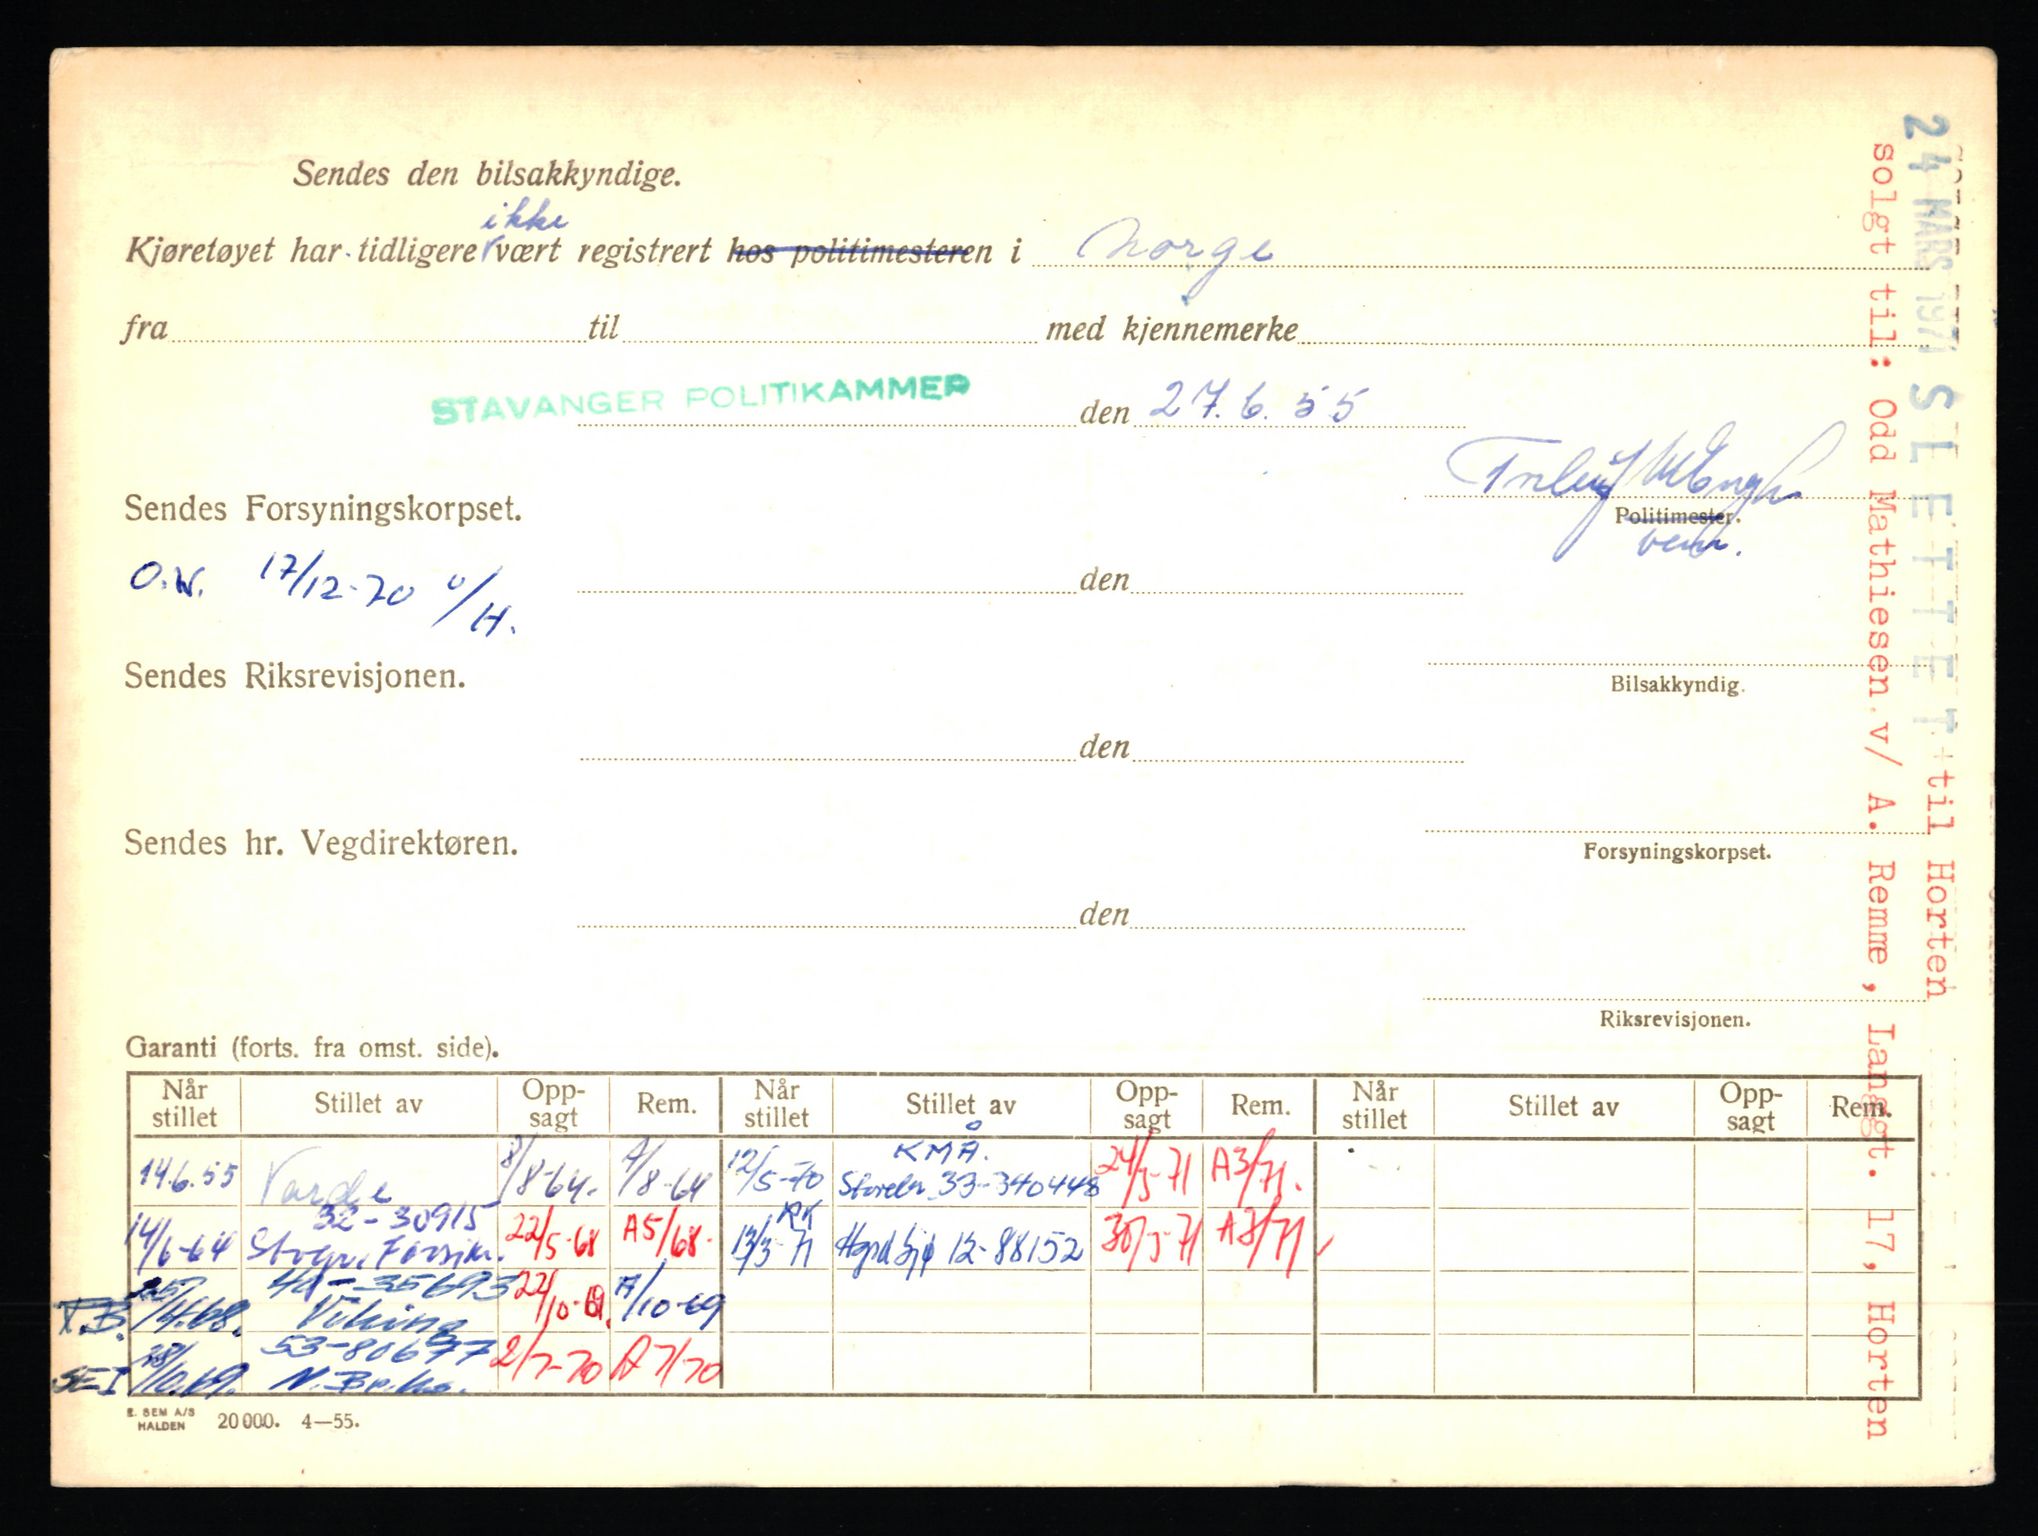 Sendes den bilsakkyndige.
ikke
Kjøretøyet har tidligere vært registrert hos politimesteren i Norge
fra til med kjennemerke
STAVANGER POLITIKAMMER den 27.6.55
Politimester.
Sendes Forsyningskorpset.
O.W. 17/12-70 H.
den
Bilsakkyndig.
Sendes Riksrevisjonen.
den
Forsyningskorpset.
Sendes hr. Vegdirektøren.
den
Riksrevisjonen.
Garanti (forts. fra omst. side).
Når stillet Stillet av Opp-sagt Rem. Når stillet Stillet av Opp-sagt Rem. Når stillet Stillet av Opp-sagt Rem.
14.6.55 Varde 8/8-64. A/8-64 12/5-70 KMÅ. 33-340448 24/3-71 A3/71.
14/6-64 32-30915 22/5-68 A5/68. 13/3-71 12-88152 30/3-71 A3/71
T.B. 40-35693 Viking 22/10-69. A/10-69
SEI 53-80677 2/7-70 A7/70
E. SEM A/S
HALDEN 20000. 4—55.
24 MARS 1971 SLETTET til Horten
solgt til: Odd Mathiesen v/ A. Remme, Langgt. 17, Horten